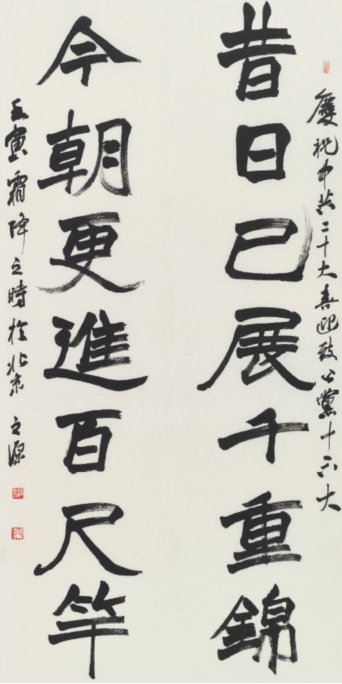 慶祝中共二十大喜迎致公黨十六大
昔日已展千重錦
今朝更進百尺竿
壬寅霜降之時於北京之源